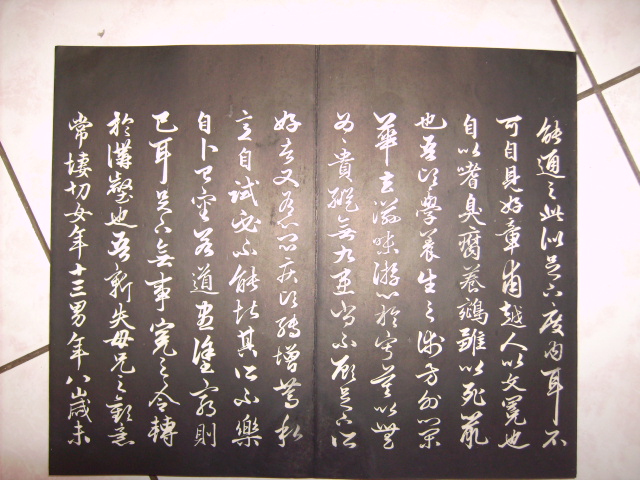 能通之此似足下度內耳不
可自見好章甫越人以文冕也
自以嗜臭腐養鴛雛以死鼠
也吾頃學養生之術方外榮
華去滋味游心於寂莫以無
為為貴縱無九患尚不顧足下所
好者又有心悶疾頃轉增篤私
意自試必不能堪其所不樂
自卜已審若道盡塗窮則
已耳足下無事冤之令轉
於溝壑也吾新失母兄之歡意
常悽切女年十三男年八歲未